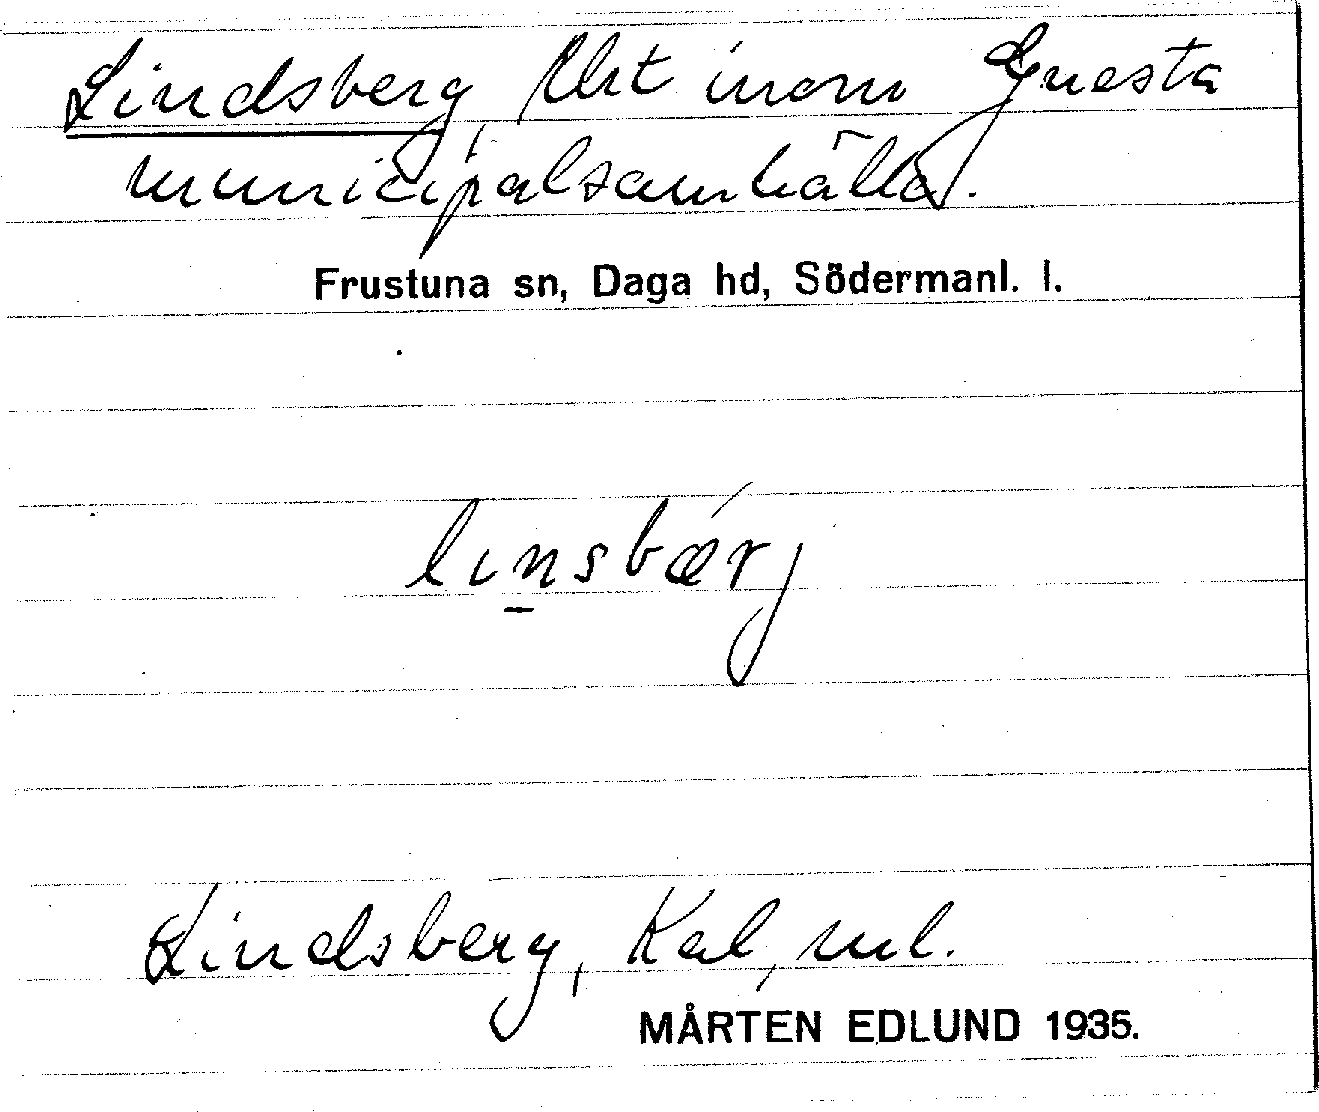 Lindsberg, lht inom Gnesta
municipalsamhälle.
Frustuna sn, Daga hd, Södermanl. l.
linsbærj
Lindsberg, Kal, ml.
MÅRTEN EDLUND 1935.